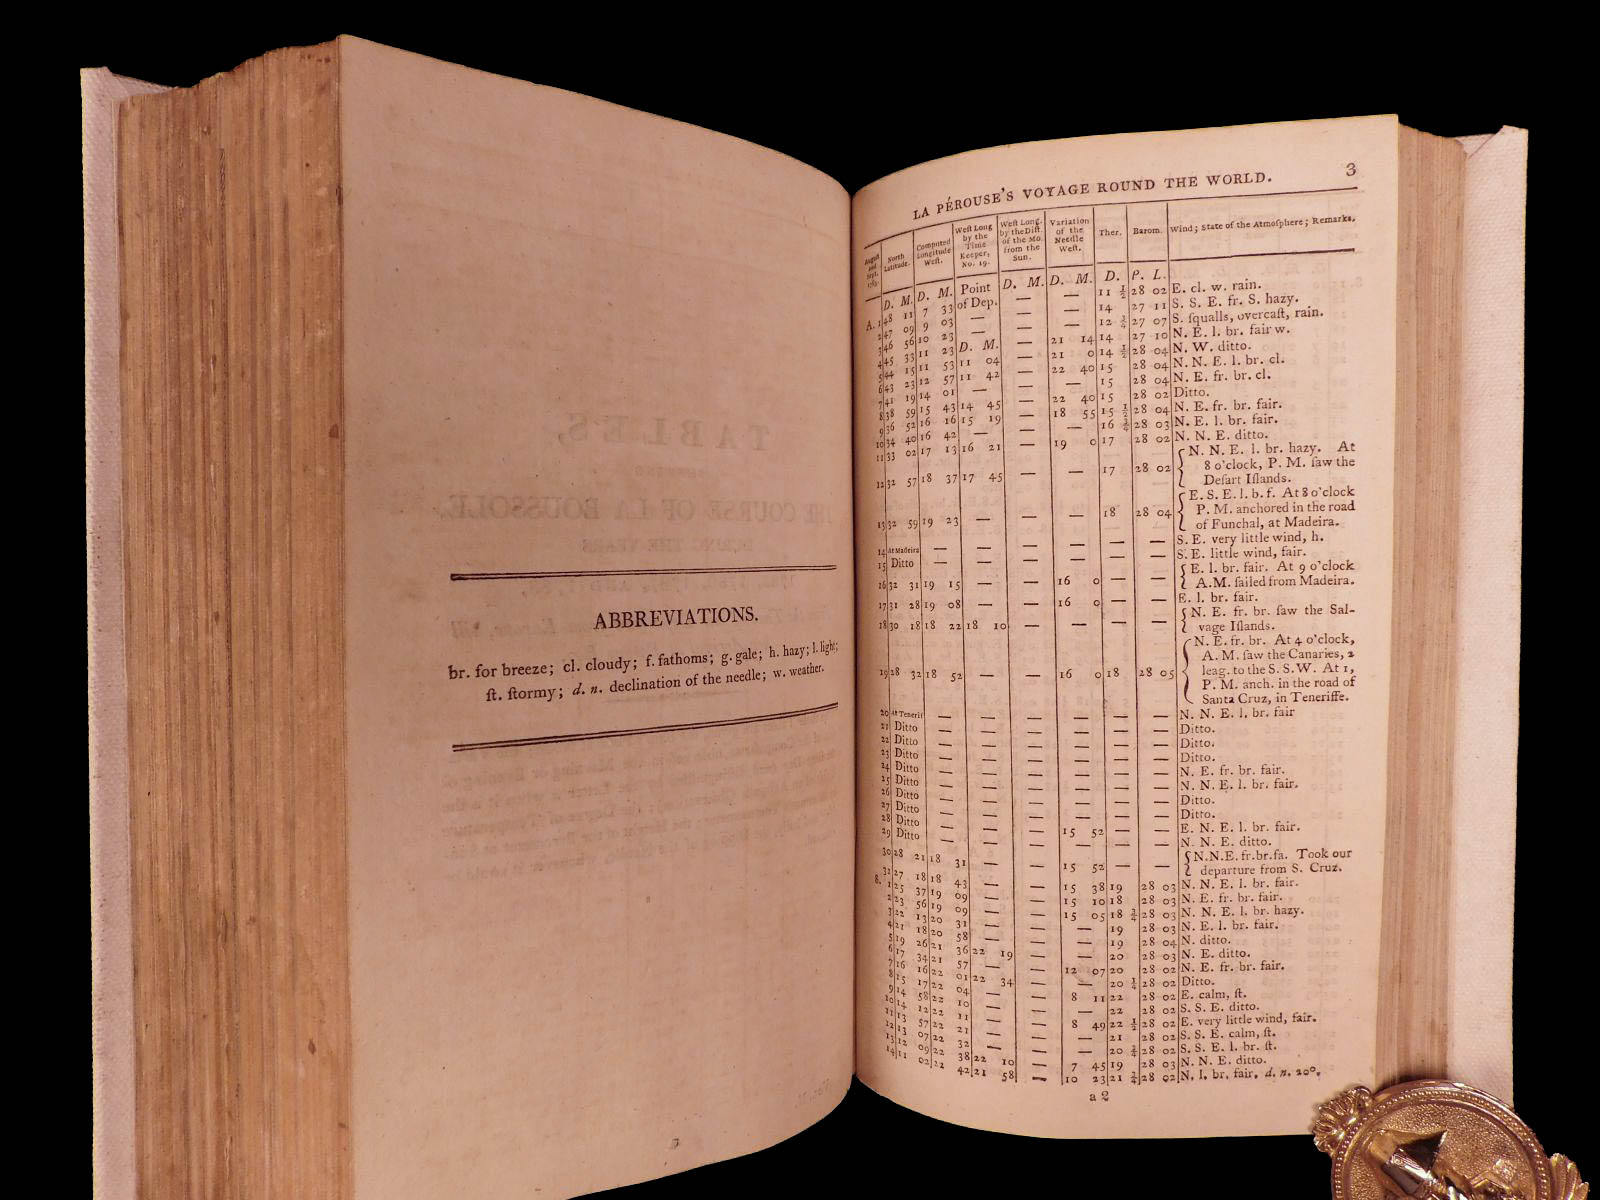 ABBREVIATIONS.
br. for breeze; cl. cloudy; f. fathoms; g. gale; h. hazy; l. light;
ſt. ſtormy; d. n. declination of the needle; w. weather.
LA PÉROUSE'S VOYAGE ROUND THE WORLD. 3
Auguſt and Sept. 1785. North Latitude. Computed Longitude Weſt. Weſt Long by the Time Keeper, No. 19. Weſt Long. by the Diſt. of the Mo. from the Sun. Variation of the Needle Weſt. Ther. Barom. Wind; State of the Atmoſphere; Remarks.
D. M. D. M. Point of Dep. D. M. D. M. D. P. L.
A. 1 48 11 7 33 — — 11 ½ 28 02 E. cl. w. rain.
2 47 09 9 03 — — — 14 27 11 S. S. E. fr. S. hazy.
3 46 56 10 23 — — — 12 27 07 S. ſqualls, overcaſt, rain.
4 45 33 11 23 D. M. — 21 14 14 27 10 N. E. l. br. fair w.
5 44 15 11 53 11 04 — 21 0 14 ½ 28 04 N. W. ditto.
6 43 23 12 57 11 42 — 22 40 15 28 04 N. N. E. l. br. cl.
7 41 19 14 01 — — — 15 28 04 N. E. fr. br. cl.
8 38 59 15 43 14 45 — 22 40 15 28 02 Ditto.
9 36 52 16 16 15 19 — 18 55 15 ½ 28 04 N. E. fr. br. fair.
10 34 40 16 42 — — — 16 28 03 N. E. l. br. fair.
11 33 02 17 13 16 21 19 0 17 28 02 N. N. E. ditto.
N. N. E. l. br. hazy. At
12 32 57 18 37 17 45 — — 17 28 02 8 o'clock, P. M. ſaw the
Deſart Iſlands.
E. S. E. l. b. f. At 8 o'clock
13 32 59 19 23 — — — 18 28 04 P. M. anchored in the road
of Funchal, at Madeira.
14 At Madeira — — — — — — S. E. very little wind, h.
15 Ditto — — — — — — S. E. little wind, fair.
E. l. br. fair. At 9 o'clock
16 32 31 19 15 — — 16 0 — — A.M. ſailed from Madeira.
17 31 28 19 08 — — 16 0 — — E. l. br. fair.
N. E. fr. br. ſaw the Sal-
18 30 18 18 22 18 10 — — — — vage Iſlands.
N. E. fr. br. At 4 o'clock,
A. M. ſaw the Canaries, 2
19 28 32 18 52 — — 16 0 18 28 05 leag. to the S. S. W. At 1,
P. M. anch. in the road of
Santa Cruz, in Teneriffe.
20 At Tenerif — — — — — — N. N. E. l. br. fair
21 Ditto — — — — — — Ditto.
22 Ditto — — — — — — Ditto.
23 Ditto — — — — — — Ditto.
24 Ditto — — — — — — N. E. fr. br. fair.
25 Ditto — — — — — — N. N. E. l. br. fair.
26 Ditto — — — — — — Ditto.
27 Ditto — — — — — — Ditto.
28 Ditto — — — 15 52 — — E. N. E. l. br. fair.
29 Ditto — — — — — — N. N. E. ditto.
N.N.E. fr.br.fa. Took our
30 28 21 18 31 — — 15 52 — — departure from S. Cruz.
31 27 18 18 43 — — 15 38 19 28 03 N. N. E. l. br. fair.
S. 1 25 37 19 09 — — 15 10 18 28 03 N. E. fr. br. fair.
2 23 56 19 09 — — 15 05 18 28 03 N. N. E. l. br. hazy.
3 22 13 20 31 — — — 19 28 03 N. E. l. br. fair.
4 21 18 20 58 — — — 19 28 04 N. ditto.
5 19 26 21 36 22 19 — — 20 28 03 N. E. ditto.
6 17 34 21 57 — — 12 07 20 28 02 N. E. fr. br. fair.
7 16 16 22 01 22 34 — — 20 28 02 Ditto.
8 15 17 22 04 — — 8 11 22 28 02 E. calm, ſt.
9 14 58 22 10 — — — 22 28 02 S. S. E. ditto.
10 14 12 22 11 — — 8 49 22 ½ 28 02 E. very little wind, fair.
11 13 57 22 21 — — — 21 28 02 S. S. E. calm, ſt.
12 13 07 22 32 — — — 20 28 02 S. S. E. l. br. ſt.
13 12 09 22 38 22 10 — 7 45 19 28 03 N. N. E. ditto.
14 11 02 22 42 21 58 — 10 23 21 28 02 N. l. br. fair, d. n. 20°.
a 2